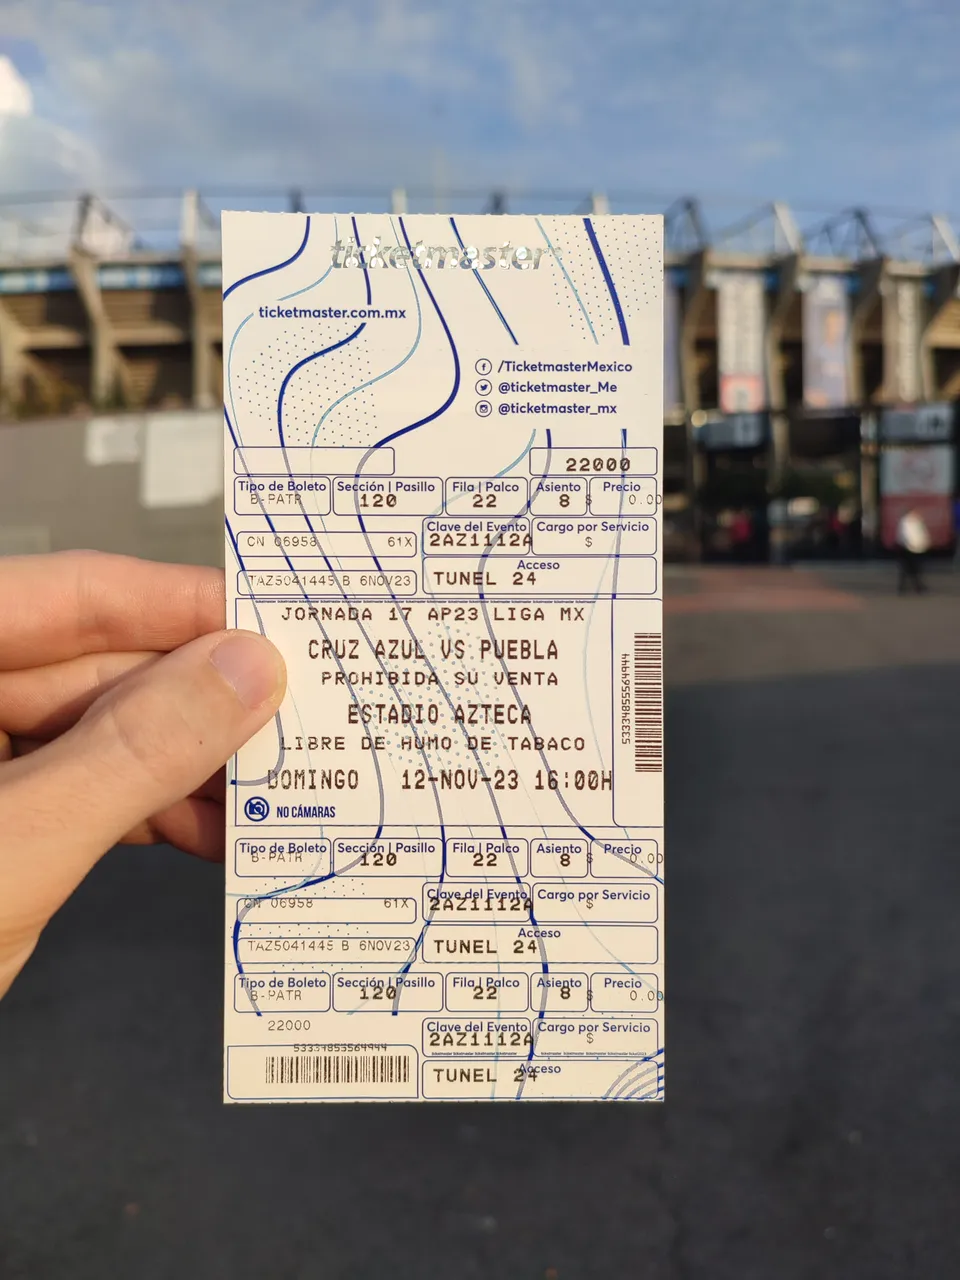 ticketmaster
ticketmaster.com.mx
/TicketmasterMexico
@ticketmaster_Me
@ticketmaster_mx
22000
Tipo de Boleto Sección | Pasillo Fila | Palco Asiento Precio
B-PATR 120 22 8 $ 0.00
Clave del Evento Cargo por Servicio
CN 06958 61X 2AZ1112A $
Acceso
TAZ5041445 B 6NOV23 TUNEL 24
JORNADA 17 AP23 LIGA MX
CRUZ AZUL VS PUEBLA
PROHIBIDA SU VENTA
ESTADIO AZTECA
LIBRE DE HUMO DE TABACO
DOMINGO 12-NOV-23 16:00H
NO CÁMARAS
Tipo de Boleto Sección | Pasillo Fila | Palco Asiento Precio
B-PATR 120 22 8 $ 0.00
Clave del Evento Cargo por Servicio
CN 06958 61X 2AZ1112A $
Acceso
TAZ5041445 B 6NOV23 TUNEL 24
Tipo de Boleto Sección | Pasillo Fila | Palco Asiento Precio
B-PATR 120 22 8 $ 0.00
22000
Clave del Evento Cargo por Servicio
2AZ1112A $
Acceso
TUNEL 24